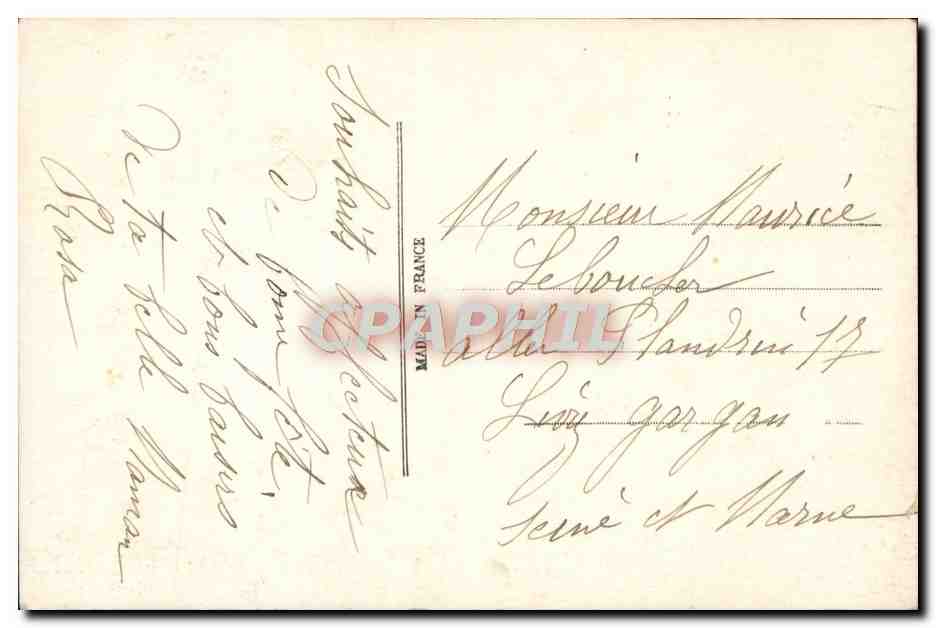 Souhaits affectueux
De bonne fête,
et bons baisers
De ta belle Maman
Rosa
MADE IN FRANCE
Monsieur Maurice
Leboucher
allée Flandrin 17
Livry gargan
Seine et Marne
CPAPHIL